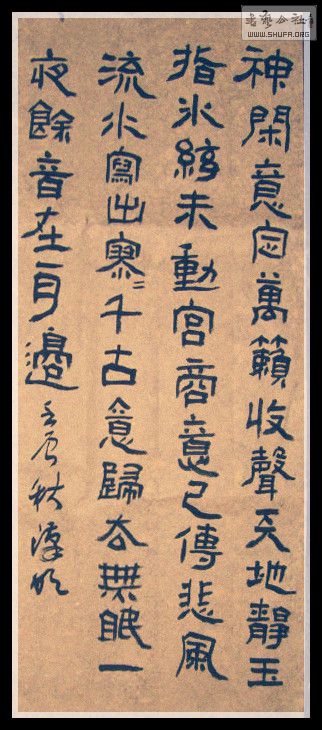 神閑意定萬籟收聲天地靜玉
指冰絃未動宮商意已傳悲風
流水寫出寥〻千古意歸去無眠一
夜餘音在耳邊
秋
书艺公社
WWW.SHUFA.ORG